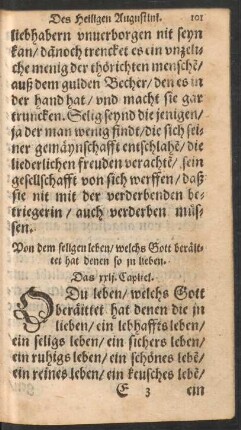 Des Heiligen Augustini. 101
liebhabern vnuerborgen nit seyn
kan/ dãnoch trencket es ein vnzeli⸗
che menig der thörichten menschẽ/
auß dem gulden Becher/ den es in
der hand hat/ vnd macht sie gar
truncken. Selig seynd die jenigen/
ja der man wenig findt/ die sich sei⸗
ner gemäynschafft entschlahẽ/ die
liederlichen freuden verachtẽ/ sein
gesellschafft von sich werffen/ daß
sie nit mit der verderbenden be⸗
triegerin/ auch verderben müs⸗
sen.
Von dem seligen leben/ welchs Gott beräit⸗
tet hat denen so jn lieben.
Das xxij. Capitel.
O Du leben/ welchs Gott
beräittet hat denen die jn
lieben/ ein lebhaffts leben/
ein seligs leben/ ein sichers leben/
ein ruhigs leben/ ein schönes lebẽ/
ein reines leben/ ein keusches lebẽ/
E 3 ein